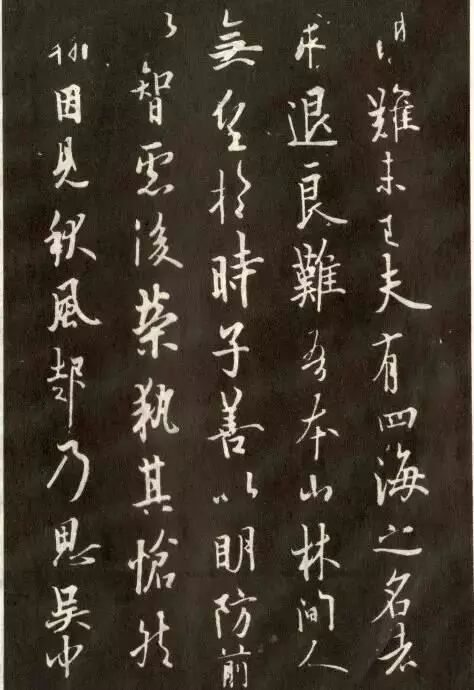 難未已夫有四海之名者
求退良難吾本山林間人
無望於時子善以明防前
以智慮後榮執其愴然
因見秋風起乃思吳中